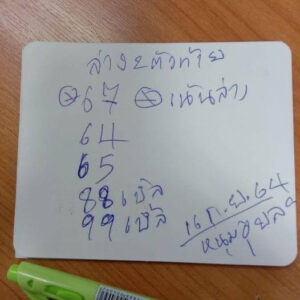 ล่าง 2 ตัวท้าย
67 เน้นล่าง
64
65
88 เบิ้ล
99 เบิ้ล
16 ก.พ. 64
หนุ่มอุบลฯ